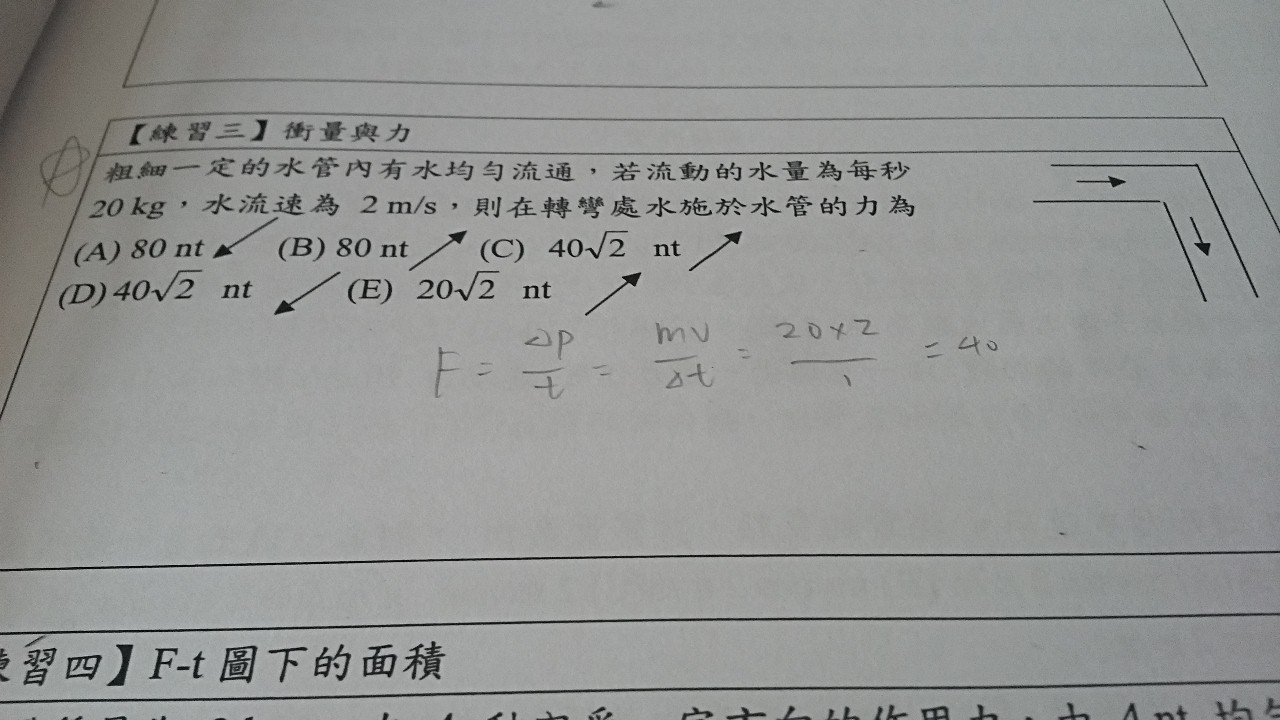 【練習三】衝量與力
粗細一定的水管內有水均勻流通,若流動的水量為每秒
20 kg,水流速為 2 m/s,則在轉彎處水施於水管的力為
(A) 80 nt ↙ (B) 80 nt ↗ (C) 40√2 nt ↗
(D) 40√2 nt ↙ (E) 20√2 nt ↗
F = Δp/t = mv/Δt = 20×2/1 = 40
習四】F-t 圖下的面積